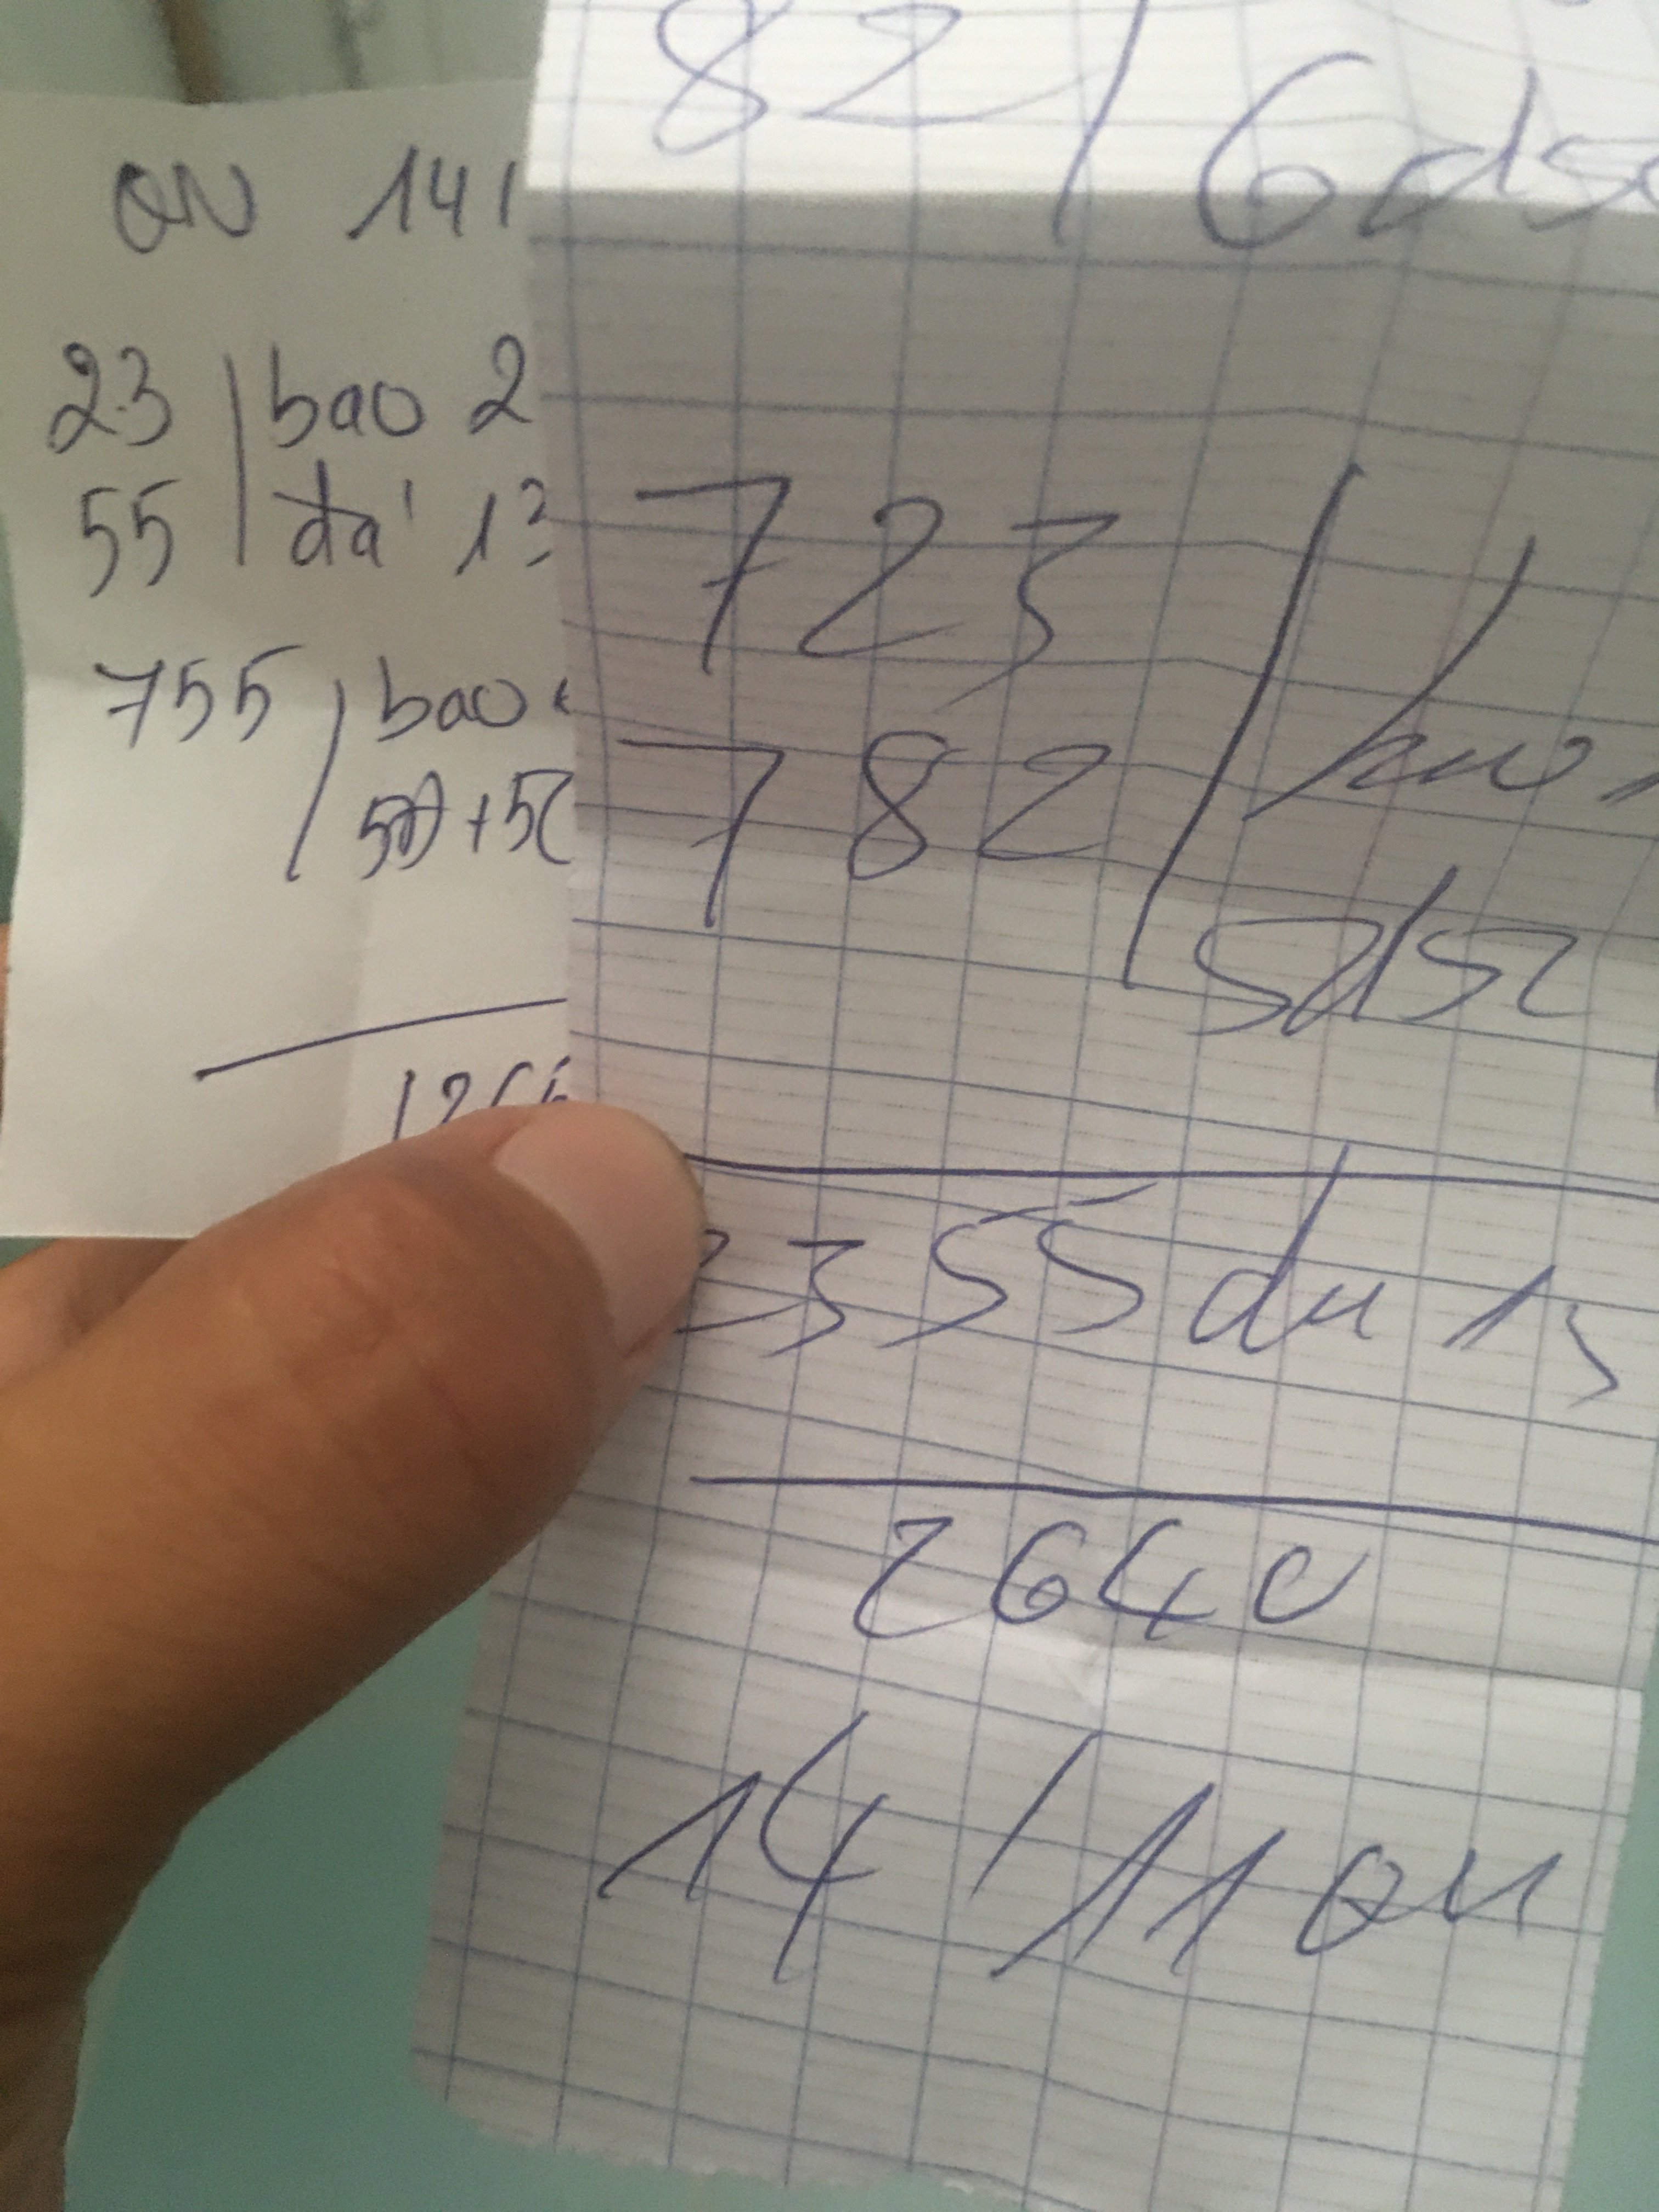 QN 141
23 | bao 2
55 | đá 13
755 | bao
50+50
126
82 / 6d50
723
782
5d52
2355 du 15
2640
14/11 QN